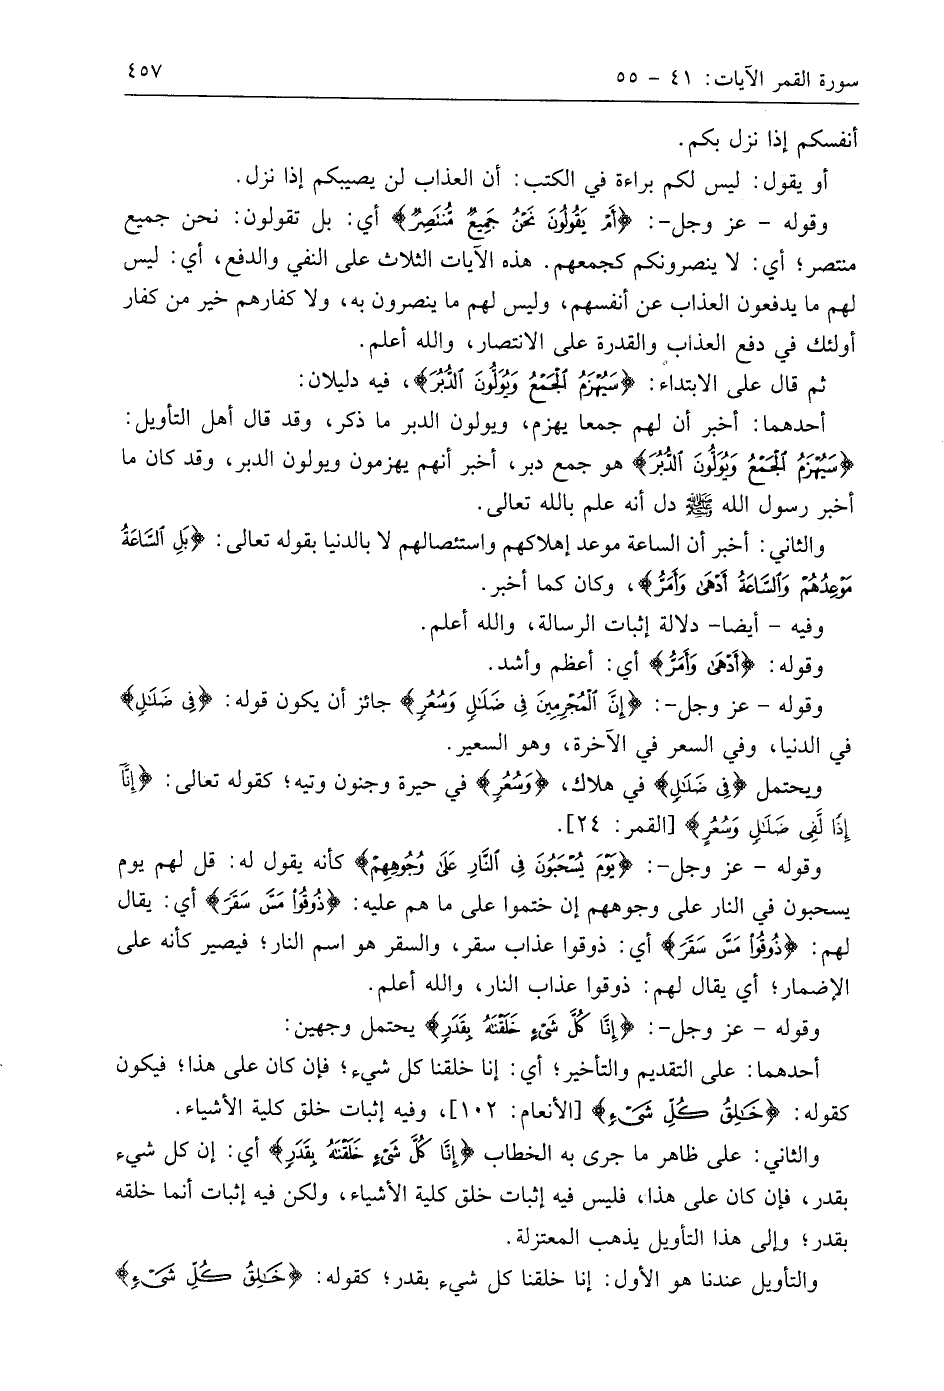 سورة القمر الآيات: ٤١ - ٥٥
٤٥٧
أنفسكم إذا نزل بكم.
أو يقول: ليس لكم براءة في الكتب: أن العذاب لن يصيبكم إذا نزل.
وقوله - عز وجل-: ﴿أَمْ يَقُولُونَ نَحْنُ جَمِيعٌ مُّنتَصِرٌ﴾ أي: بل تقولون: نحن جميع
منتصر؛ أي: لا ينصرونكم كجمعهم. هذه الآيات الثلاث على النفي والدفع، أي: ليس
لهم ما يدفعون العذاب عن أنفسهم، وليس لهم ما ينصرون به، ولا كفارهم خير من كفار
أولئك في دفع العذاب والقدرة على الانتصار، والله أعلم.
ثم قال على الابتداء: ﴿سَيُهْزَمُ ٱلْجَمْعُ وَيُوَلُّونَ ٱلدُّبُرَ﴾، فيه دليلان:
أحدهما: أخبر أن لهم جمعا يهزم، ويولون الدبر ما ذكر، وقد قال أهل التأويل:
﴿سَيُهْزَمُ ٱلْجَمْعُ وَيُوَلُّونَ ٱلدُّبُرَ﴾ هو جمع دبر، أخبر أنهم يهزمون ويولون الدبر، وقد كان ما
أخبر رسول الله ﷺ دل أنه علم بالله تعالى.
والثاني: أخبر أن الساعة موعد إهلاكهم واستئصالهم لا بالدنيا بقوله تعالى: ﴿بَلِ ٱلسَّاعَةُ
مَوْعِدُهُمْ وَٱلسَّاعَةُ أَدْهَىٰ وَأَمَرُّ﴾، وكان كما أخبر.
وفيه - أيضا- دلالة إثبات الرسالة، والله أعلم.
وقوله: ﴿أَدْهَىٰ وَأَمَرُّ﴾ أي: أعظم وأشد.
وقوله - عز وجل-: ﴿إِنَّ ٱلْمُجْرِمِينَ فِى ضَلَٰلٍ وَسُعُرٍ﴾ جائز أن يكون قوله: ﴿فِى ضَلَٰلٍ﴾
في الدنيا، وفي السعر في الآخرة، وهو السعير.
ويحتمل ﴿فِى ضَلَٰلٍ﴾ في هلاك، ﴿وَسُعُرٍ﴾ في حيرة وجنون وتيه؛ كقوله تعالى: ﴿إِنَّآ
إِذًا لَّفِى ضَلَٰلٍ وَسُعُرٍ﴾ [القمر: ٢٤].
وقوله - عز وجل-: ﴿يَوْمَ يُسْحَبُونَ فِى ٱلنَّارِ عَلَىٰ وُجُوهِهِمْ﴾ كأنه يقول له: قل لهم يوم
يسحبون في النار على وجوههم إن ختموا على ما هم عليه: ﴿ذُوقُوا۟ مَسَّ سَقَرَ﴾ أي: يقال
لهم: ﴿ذُوقُوا۟ مَسَّ سَقَرَ﴾ أي: ذوقوا عذاب سقر، والسقر هو اسم النار؛ فيصير كأنه على
الإضمار؛ أي يقال لهم: ذوقوا عذاب النار، والله أعلم.
وقوله - عز وجل-: ﴿إِنَّا كُلَّ شَىْءٍ خَلَقْنَٰهُ بِقَدَرٍ﴾ يحتمل وجهين:
أحدهما: على التقديم والتأخير؛ أي: إنا خلقنا كل شيء؛ فإن كان على هذا؛ فيكون
كقوله: ﴿خَٰلِقُ كُلِّ شَىْءٍ﴾ [الأنعام: ١٠٢]، وفيه إثبات خلق كلية الأشياء.
والثاني: على ظاهر ما جرى به الخطاب ﴿إِنَّا كُلَّ شَىْءٍ خَلَقْنَٰهُ بِقَدَرٍ﴾ أي: إن كل شيء
بقدر، فإن كان على هذا، فليس فيه إثبات خلق كلية الأشياء، ولكن فيه إثبات أنما خلقه
بقدر؛ وإلى هذا التأويل يذهب المعتزلة.
والتأويل عندنا هو الأول: إنا خلقنا كل شيء بقدر؛ كقوله: ﴿خَٰلِقُ كُلِّ شَىْءٍ﴾